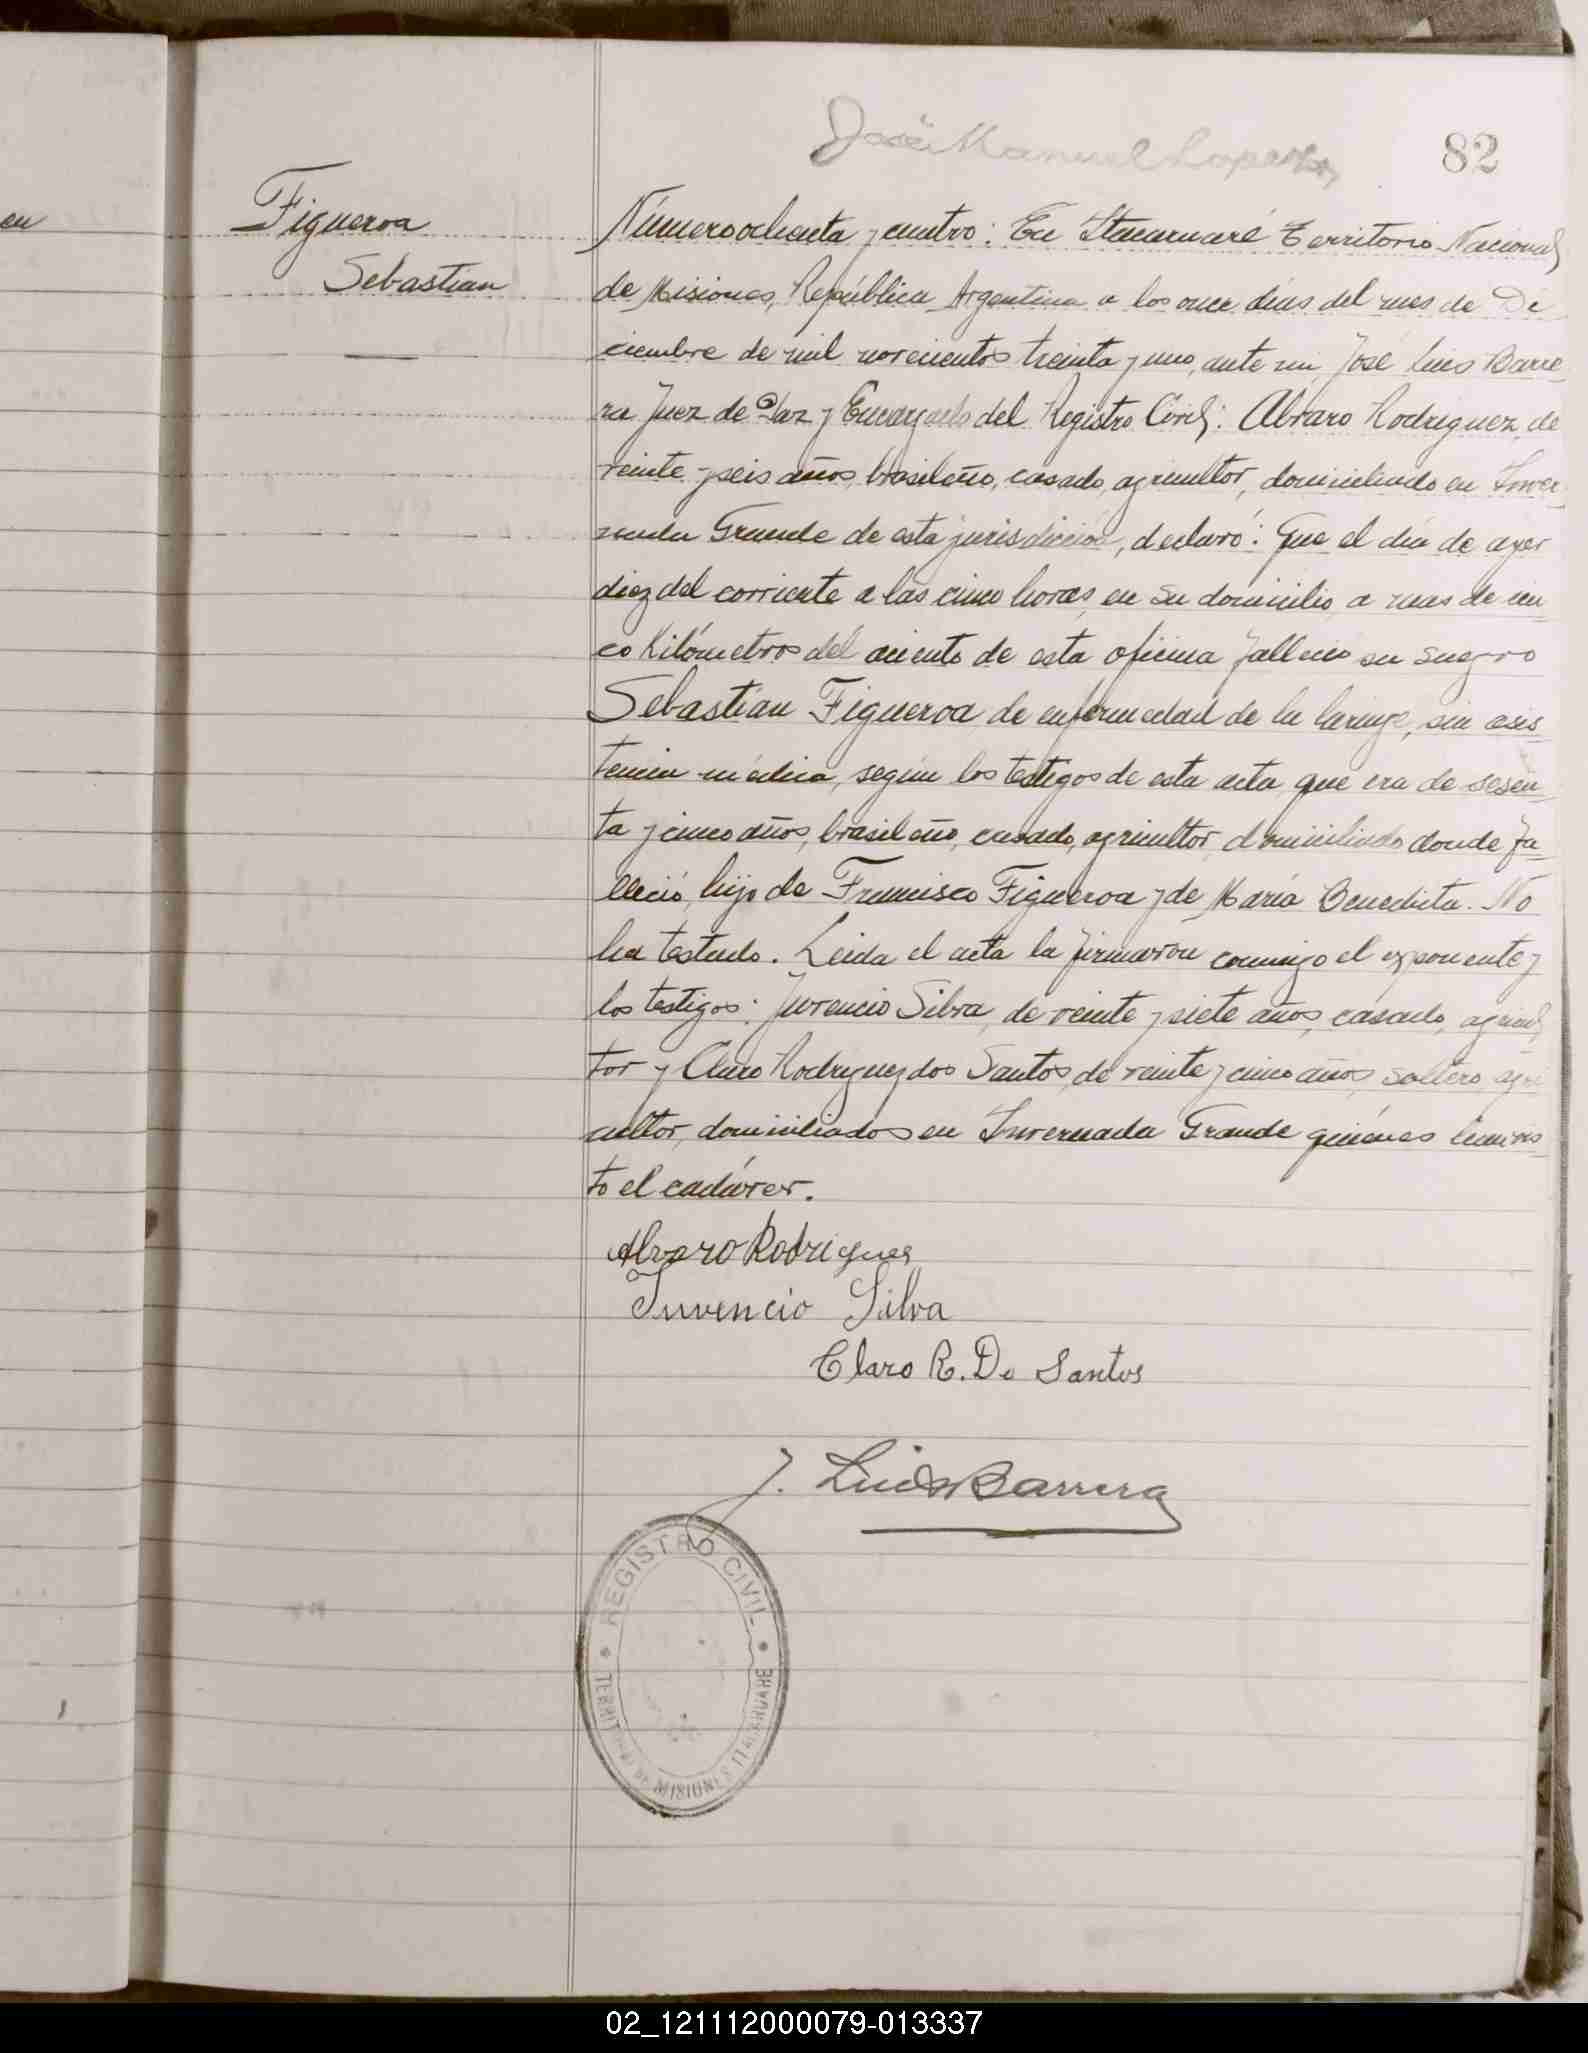 José Manuel
82
en
Figueroa
Sebastian
Número ochenta y cuatro: En Itacaruaré Territorio Nacional
de Misiones, República Argentina a los once días del mes de Di
ciembre de mil novecientos treinta y uno, ante mi, José Luis Barre-
ra Juez de Paz y Encargado del Registro Civil: Alvaro Rodriguez, de
veinte y seis años, brasileño, casado, agricultor, domiciliado en Inver-
nada Grande de esta jurisdicción, declaró: Que el día de ayer
diez del corriente a las cinco horas, en su domicilio, a mas de cin-
co Kilómetros del asiento de esta oficina falleció su suegro
Sebastian Figueroa, de enfermedad de la laringe, sin asis-
tencia médica, según los testigos de esta acta que era de sesen-
ta y cinco años, brasileño, casado, agricultor, domiciliado donde fa-
lleció, hijo de Francisco Figueroa y de María Benedicta. No
ha testado. Leida el acta la firmaron conmigo el exponente y
los testigos: Juvencio Silva, de veinte y siete años, casado, agricul-
tor y Claro Rodriguez dos Santos, de veinte y cinco años, soltero, agri
cultor, domiciliados en Invernada Grande quiénes han vis-
to el cadáver.
Alvaro Rodrigues
Juvencio Silva
Claro R. Do Santos
J. Luis Barrera
REGISTRO CIVIL
TERRITORIO DE MISIONES ITACARUARE
02_121112000079-013337